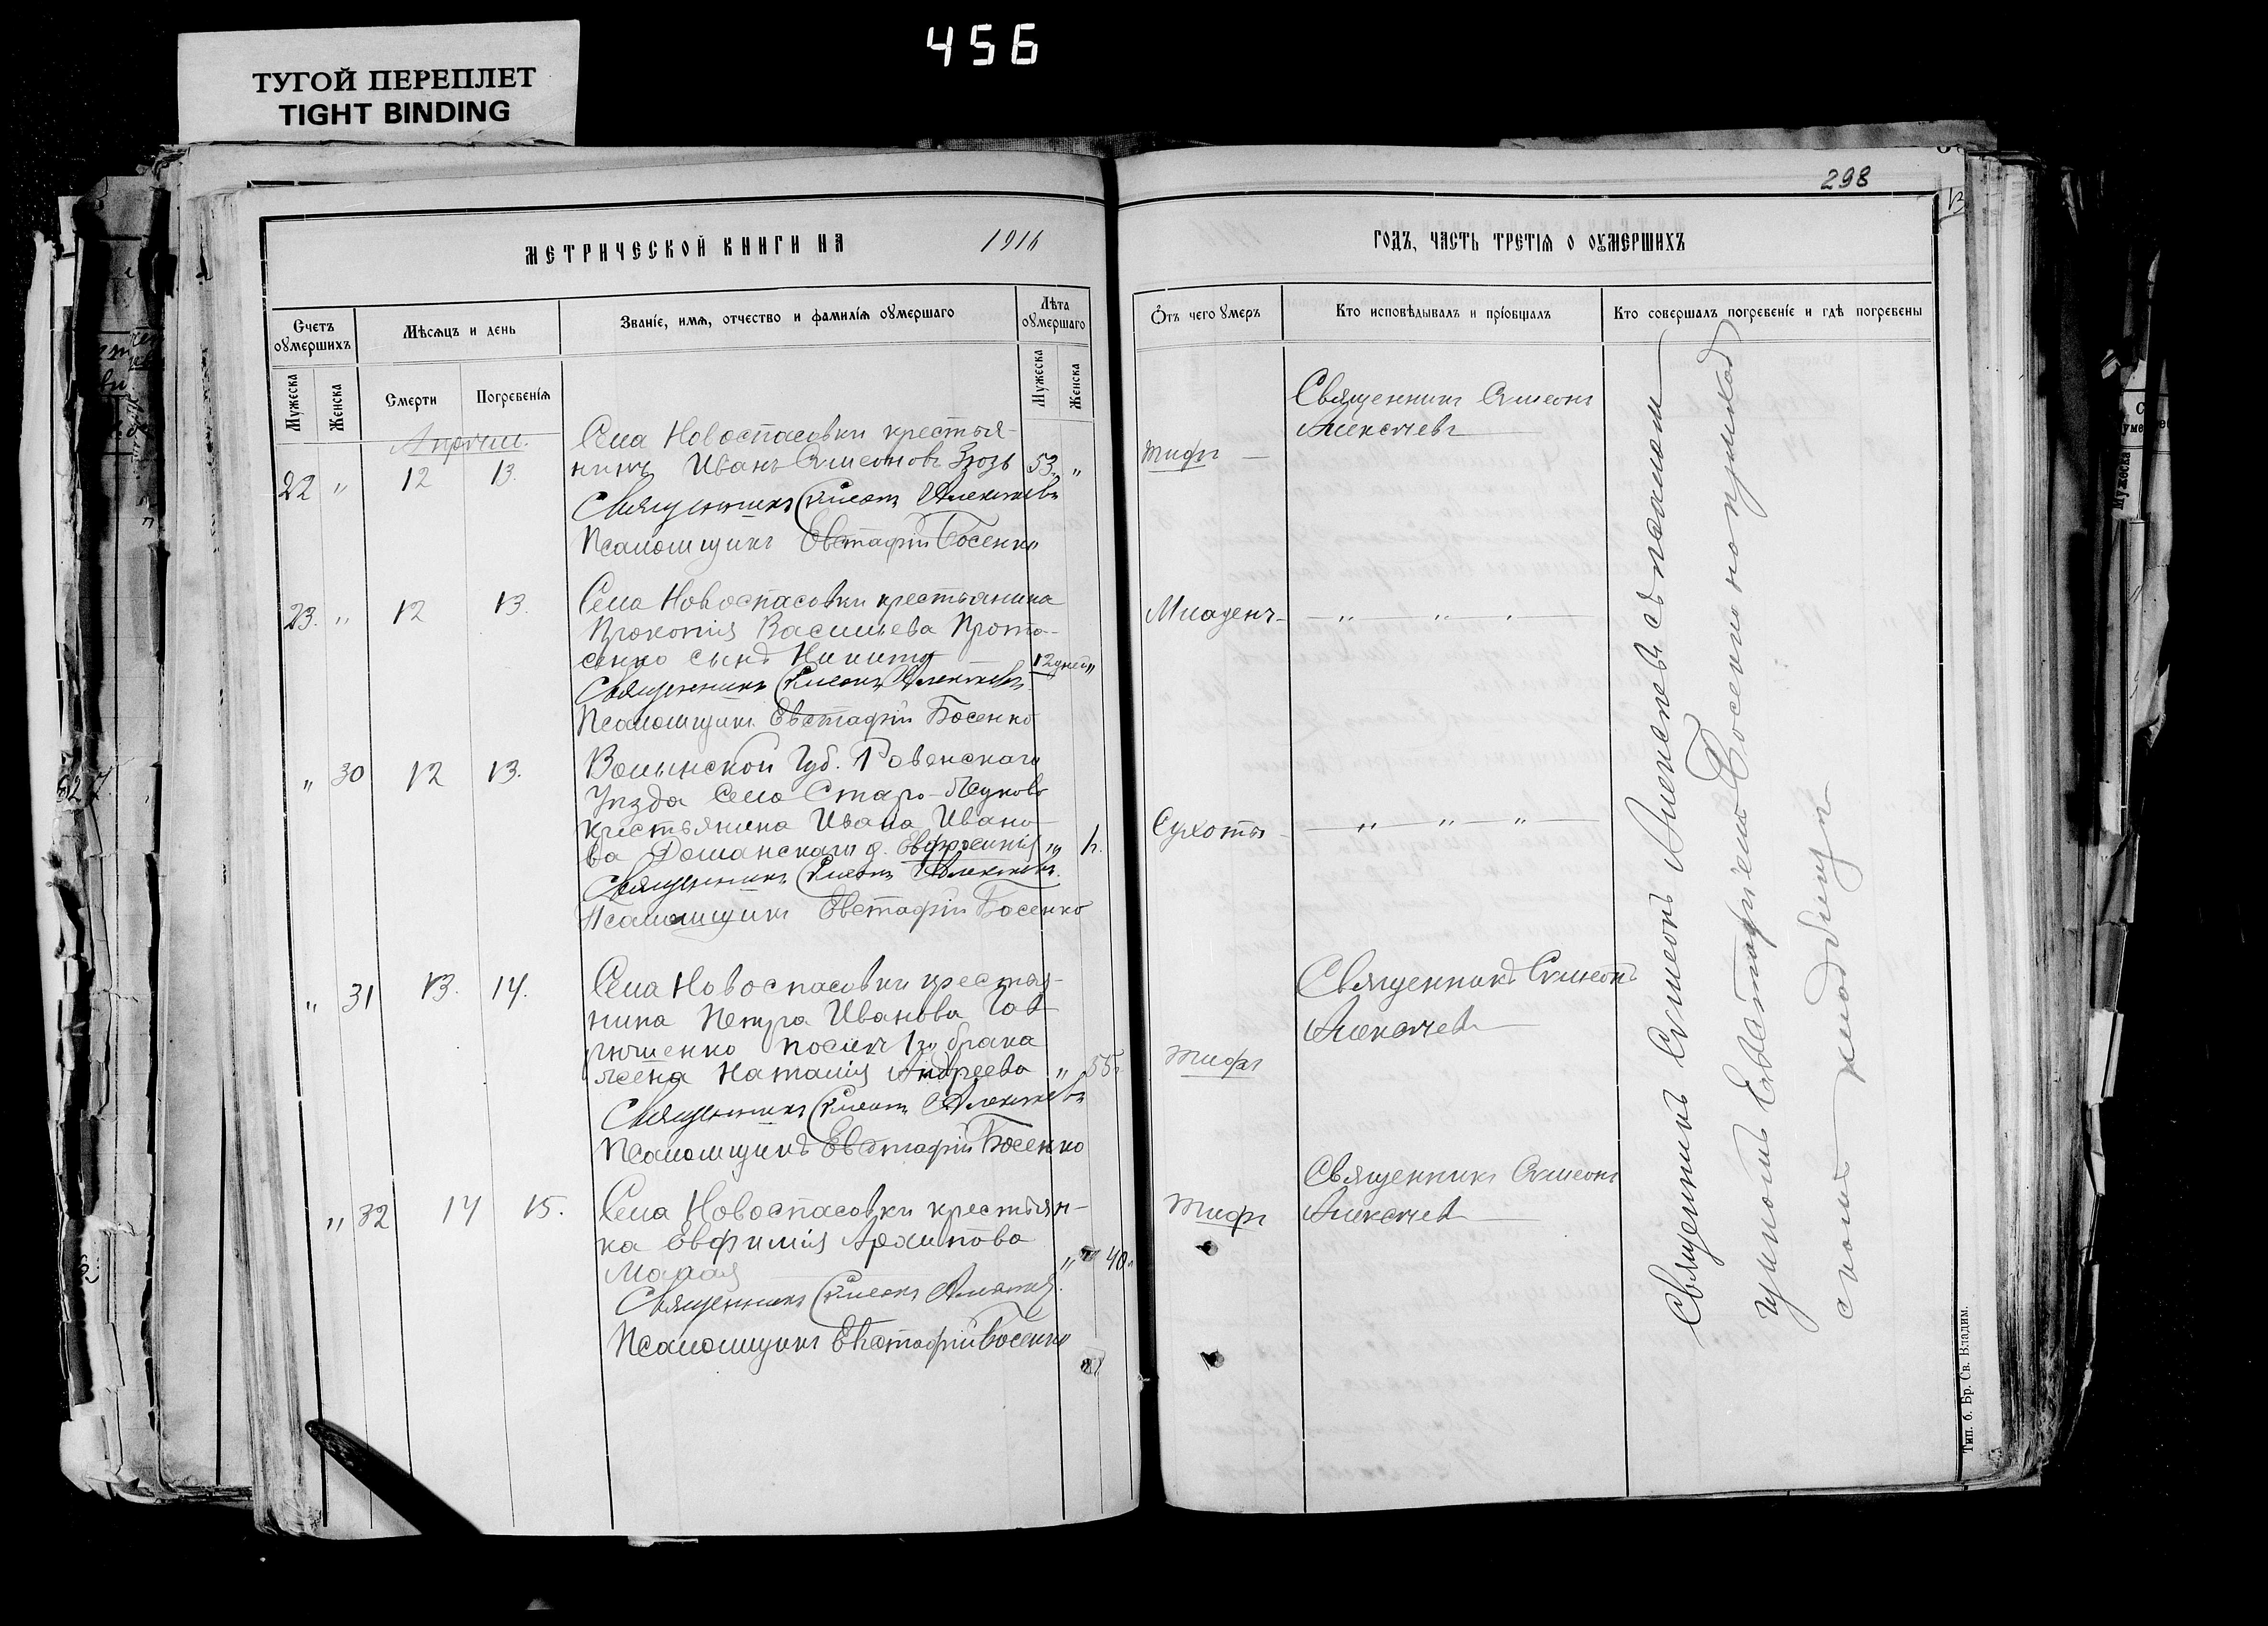 456
ТУГОЙ ПЕРЕПЛЕТ
TIGHT BINDING
298
МЕТРИЧЕСКОЙ КНИГИ НА 1916
ГОДЪ, ЧАСТЬ ТРЕТІЯ О ОУМЕРШИХЪ
Счетъ оумершихъ
Мѣсяцъ и день
Званіе, имя, отчество и фамилія оумершаго
Лѣта оумершаго
Мужеска
Женска
Смерти
Погребенія
Мужеска
Женска
Отъ чего умеръ
Кто исповѣдывалъ и пріобщалъ
Кто совершалъ погребеніе и гдѣ погребены
22 " 12 13.
Села Новоспасовки крестья-
нинъ Иванъ Симеоновъ 53. "
Священникъ Симеонъ Алексѣевъ
Псаломщикъ Евстафій Босенко
Тифъ
Священникъ Симеонъ
Алексѣевъ
23. " 12 13.
Села Новоспасовки крестьянина
Прокопія Васильева Прото-
сенко сынъ Никита 12 дней "
Священникъ Симеонъ Алексѣевъ
Псаломщикъ Евстафій Босенко
Младенч.
" " "
" 30 12 13.
Волынской Губ. Ровенскаго
Уѣзда Села Старо-Жуково
крестьянина Ивана Ивано-
ва Доманскаго д. Евфросинія "
Священникъ Симеонъ Алексѣевъ.
Псаломщикъ Евстафій Босенко
Сухоты
" " "
" 31 13. 14.
Села Новоспасовки крестья-
нина Петра Иванова Гав-
рюшенко послѣ 1го брака
жена Наталія Андреева " 55
Священникъ Симеонъ Алексѣевъ
Псаломщикъ Евстафій Босенко
Тифъ
Священникъ Симеонъ
Алексѣевъ
" 32 14 15.
Села Новоспасовки крестьян-
ка Евфимія Архипова
Малая " 40
Священникъ Симеонъ Алексѣевъ
Псаломщикъ Евстафій Босенко
Тифъ
Священникъ Симеонъ
Алексѣевъ
Священникъ Симеонъ Алексѣевъ съ псаломщи-
комъ Евстафіемъ Босенко на приход
скомъ кладбищѣ
Тип. б. Бр. Св. Владим.